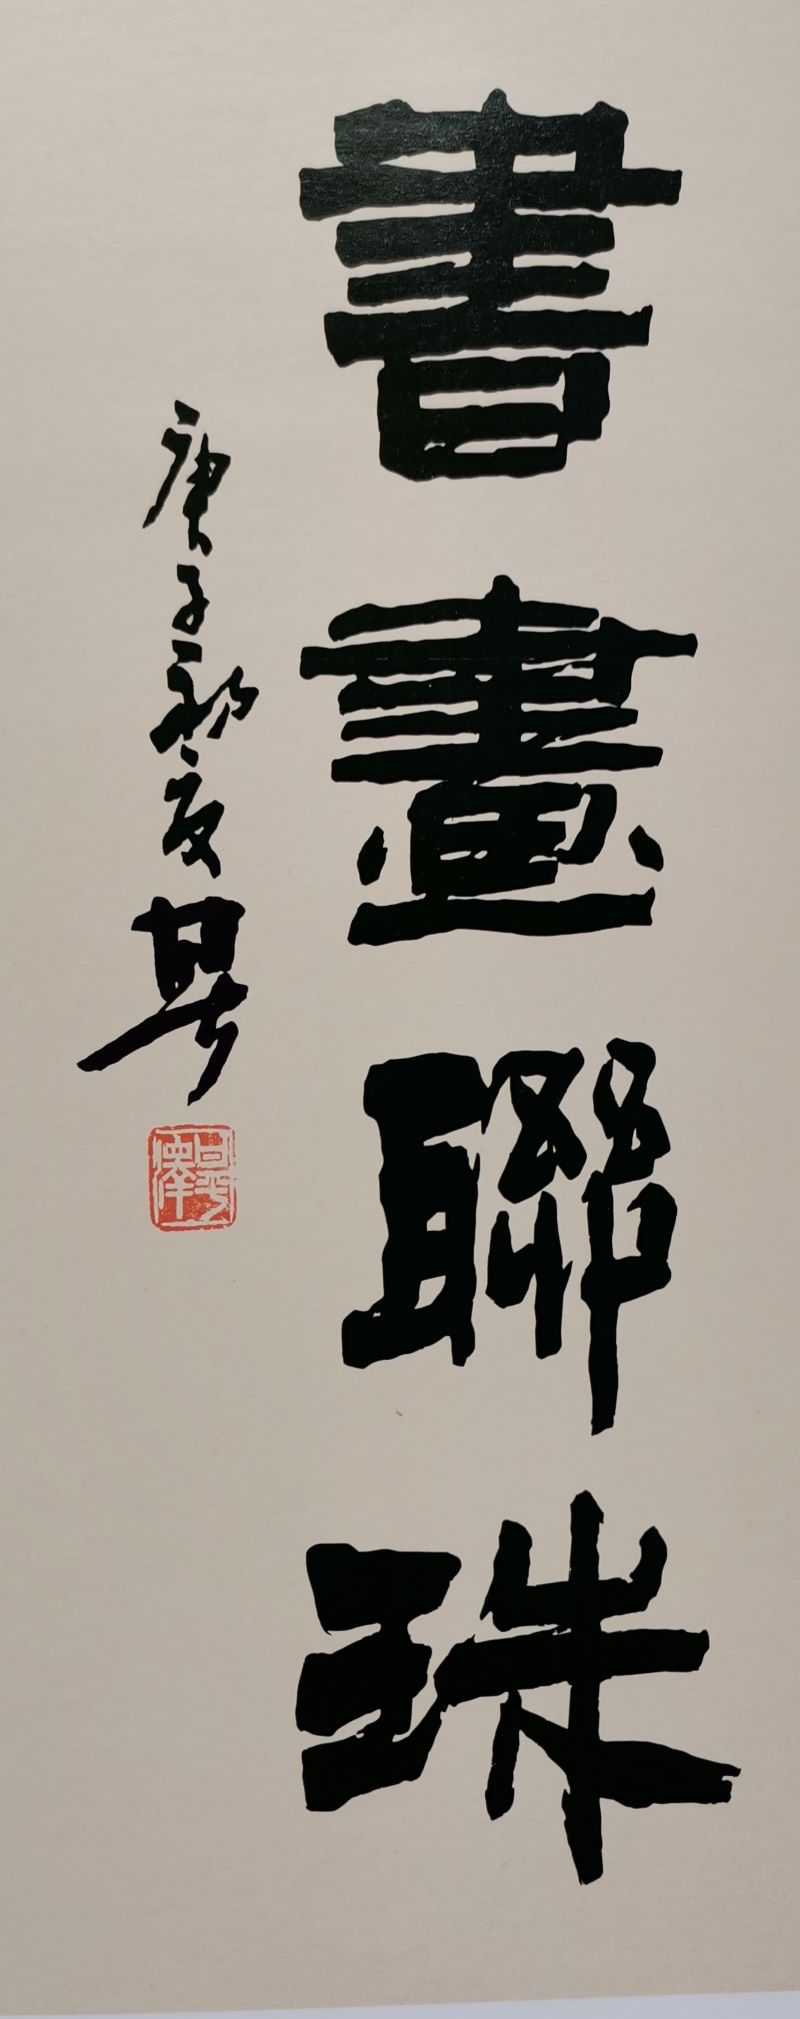 書畫聯珠
庚子初夏